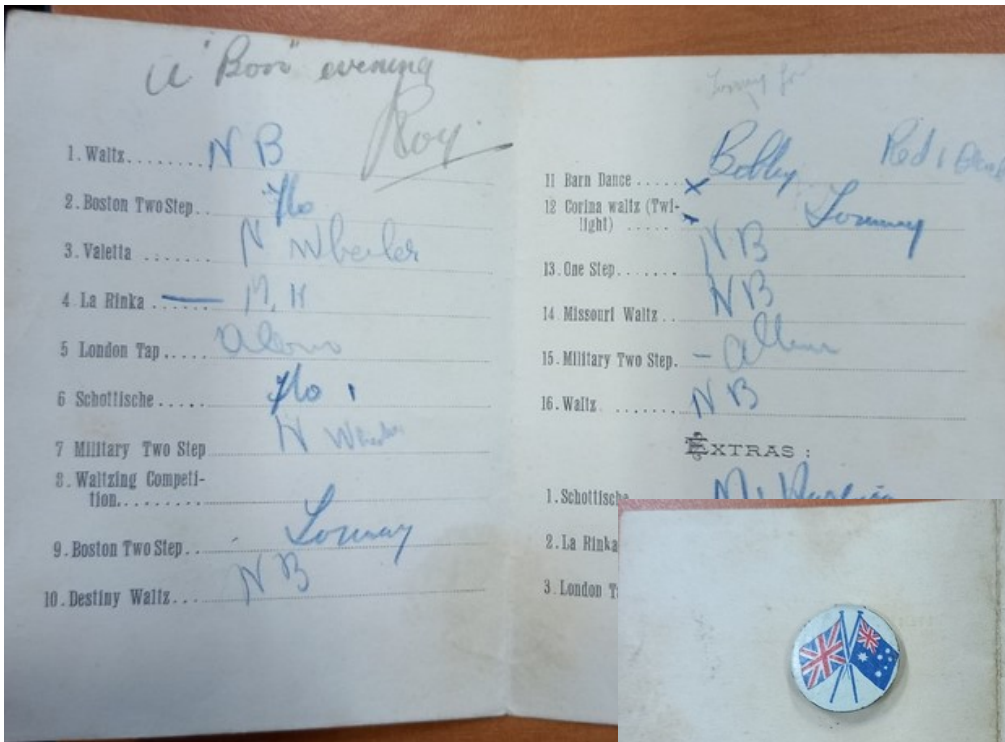 A "Bon" evening
Roy.
1. Waltz........ N B
2. Boston Two Step.. Flo
3. Valetta ....... N Wheeler
4 La Rinka ...... M. H
5 London Tap.....
6 Schottische ..... Flo
7 Military Two Step N Wheeler
8. Waltzing Competi-
tion.........
9. Boston Two Step... Tommy
10. Destiny Waltz.... N B
Tommy for
11 Barn Dance ...... x Bobby Red 1
12 Corina waltz (Twi-
light) ..... x Tommy
13. One Step....... N B
14 Missouri Waltz .. N B
15. Military Two Step. -
16. Waltz ........ N B
EXTRAS :
1. Schottische M.
2. La Rinka
3. London T